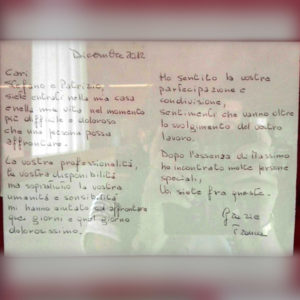 Dicembre 2012
Cari
Stefano e Patrizio,
siete entrati nella mia casa
e nella mia vita nel momento
più difficile e doloroso
che una persona possa
affrontare.
La vostra professionalità,
la vostra disponibilità
ma soprattutto la vostra
umanità e sensibilità
mi hanno aiutato ad affrontare
quei giorni e quel giorno
dolorosissimo.
Ho sentito la vostra
partecipazione e
condivisione,
sentimenti che vanno oltre
lo svolgimento del vostro
lavoro.
Dopo l'assenza di Massimo
ho incontrato molte persone
speciali,
voi siete fra queste.
Grazie